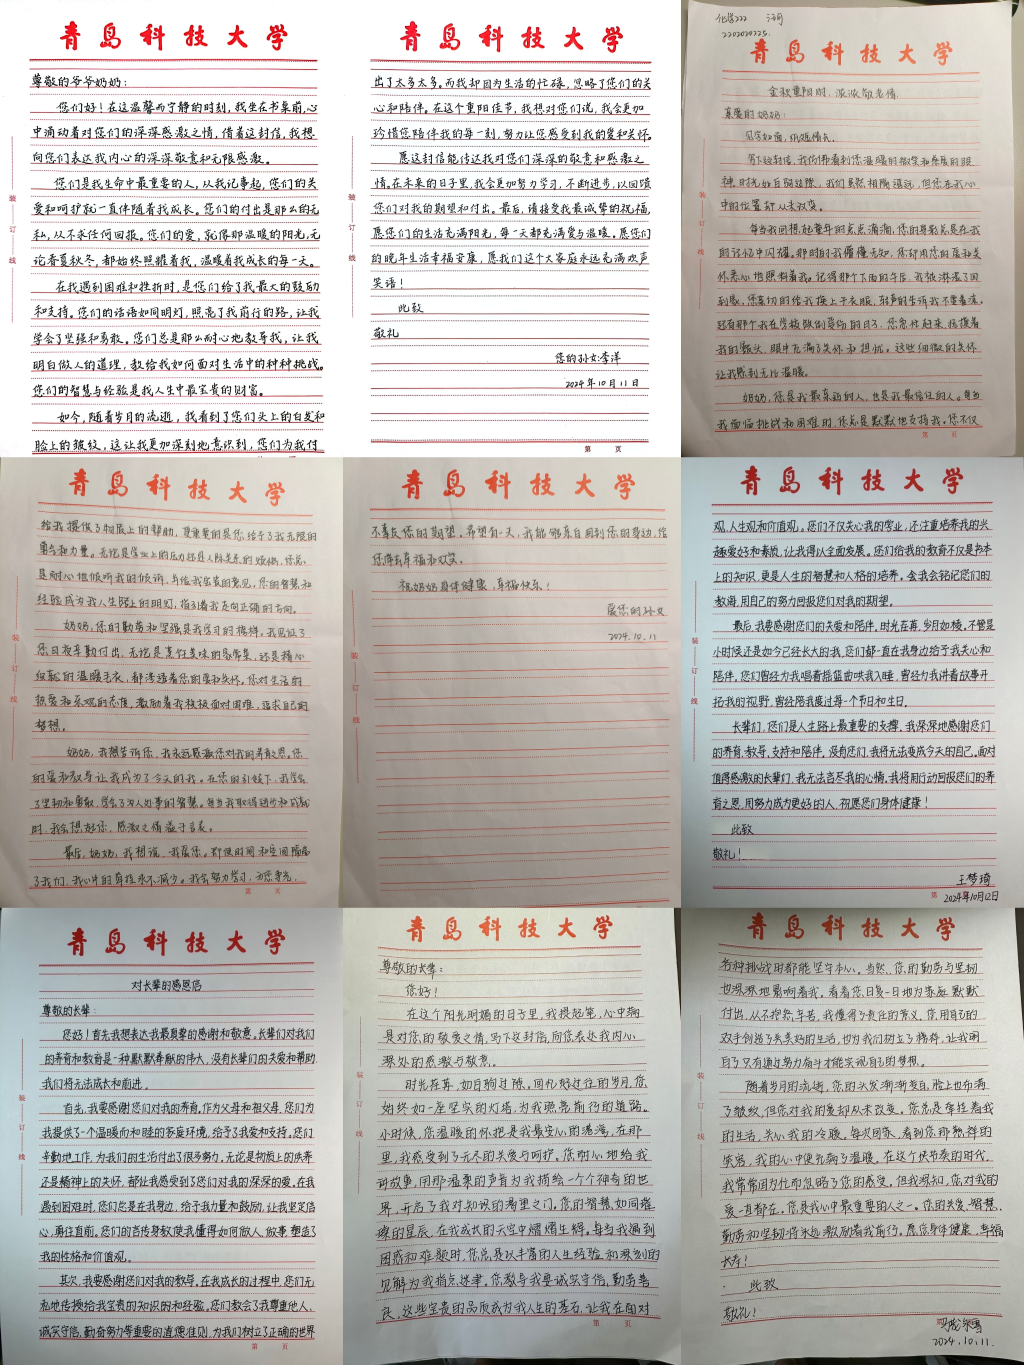 青岛科技大学
尊敬的爷爷奶奶：
您们好！在这温馨而宁静的时刻，我坐在书桌前，心
中涌动着对您们的深深感激之情，借着这封信，我想
向您们表达我内心的深深敬意和无限感激。
您们是我生命中最重要的人，从我记事起，您们的关
爱和呵护就一直伴随着我成长。您们的付出是那么的无
私，从不求任何回报。您们的爱，就像那温暖的阳光，无
论春夏秋冬，都始终照耀着我，温暖着我成长的每一天。
在我遇到困难和挫折时，是您们给了我最大的鼓励
和支持。您们的话语如同明灯，照亮了我前行的路，让我
学会了坚强和勇敢。您们总是那么耐心地教导我，让我
明白做人的道理，教给我如何面对生活中的种种挑战。
您们的智慧与经验是我人生中最宝贵的财富。
如今，随着岁月的流逝，我看到了您们头上的白发和
脸上的皱纹，这让我更加深刻地意识到，您们为我付
装订线
青岛科技大学
出了太多太多。而我却因为生活的忙碌，忽略了您们的关
心和陪伴。在这个重阳佳节，我想对您们说，我会更加
珍惜您陪伴我的每一刻，努力让您感受到我的爱和关怀。
愿这封信能传达我对您们深深的敬意和感激之
情。在未来的日子里，我会更加努力学习，不断进步，以回馈
您们对我的期望和付出。最后，请接受我最诚挚的祝福，
愿您们的生活充满阳光，每一天都充满爱与温暖。愿您们
的晚年生活幸福安康，愿我们这个大家庭永远充满欢声
笑语！
此致
敬礼
您的孙女：李洋
2024年10月11日
装订线
第 页
青岛科技大学
金秋重阳时，浓浓敬老情
亲爱的奶奶：
见字如面，纸短情长。
写下这封信，我仿佛看到您温暖的微笑和慈爱的眼
神。时光如白驹过隙，我们虽然相隔遥远，但您在我心
中的位置却从未改变。
每当我回想起童年的点点滴滴，您的身影总是在我
的记忆中闪耀。那时的我懵懂无知，您却用您的爱和关
怀悉心地照料着我。记得那个下雨的午后，我被淋湿了回
到家，您急切的给我换上干衣服，轻声的告诉我不要着凉。
还有那个我在学校受到委屈的日子，您急忙赶来，抚摸着
我的额头，眼中充满了关怀和担忧。这些细微的关怀
让我感到无比温暖。
奶奶，您是我最亲近的人，也是我最信任的人。每当
我面临挑战和困难时，您总是默默地支持我。您不仅
装订线
第 页
青岛科技大学
给我提供了物质上的帮助，更重要的是您给予了我无限的
勇气和力量。无论是学业上的压力还是人际关系的烦恼，您总
是耐心地倾听我的倾诉，并给我宝贵的意见。您的智慧和
经验成为我人生路上的明灯，指引着我走向正确的方向。
奶奶，您的勤劳和坚强是我学习的榜样。我见证了
您日夜辛勤付出，无论是烹饪美味的家常菜，还是精心
编织的温暖毛衣，都渗透着您的爱和关怀。您对生活的
热爱和乐观的态度，激励着我积极面对困难，追求自己的
梦想。
奶奶，我想告诉您，我永远感激您对我的养育之恩。您
的爱和教导让我成为了今天的我。在您的引领下，我学会
了坚韧和勇敢，学会了为人处事的智慧。每当我取得进步和成就
时，我会想起您，感激之情溢于言表。
最后，奶奶，我想说，我爱您。即使时间和空间隔离
了我们，我心中的牵挂永不减少。我会努力学习，为您争光，
装订线
第 页
青岛科技大学
不辜负您的期望。希望有一天，我能够亲自回到您的身边，给
您带去幸福和欢笑。
祝奶奶身体健康，幸福快乐！
爱您的孙女
2024.10.11
装订线
青岛科技大学
观、人生观和价值观。您们不仅关心我的学业，还注重培养我的兴
趣爱好和素质，让我得以全面发展。您们给我的教育不仅是书本
上的知识，更是人生的智慧和人格的培养。会我会铭记您们的
教诲，用自己的努力回报您们对我的期望。
最后，我要感谢您们的关爱和陪伴。时光在苒，岁月如梭。不管是
小时候还是如今已经长大的我，您们都一直在我身边给予我关心和
陪伴。您们曾经为我唱着摇篮曲哄我入睡，曾经为我讲着故事开
拓我的视野，曾经陪我度过每一个节日和生日。
长辈们，您们是人生路上最重要的支撑。我深深地感谢您们
的养育、教导、支持和陪伴。没有您们，我将无法变成今天的自己。面对
值得感激的长辈们，我无法言尽我的心情。我将用行动回报您们的养
育之恩，用努力成为更好的人，祝愿您们身体健康！
此致
敬礼！
王梦琦
2024年10月12日
装订线
第
青岛科技大学
对长辈的感恩信
尊敬的长辈：
您好！首先我想表达我最真挚的感谢和敬意。长辈们对我们
的养育和教育是一种默默奉献的伟大，没有长辈们的关爱和帮助
我们将无法成长和前进。
首先，我要感谢您们对我的养育。作为父母和祖父母，您们为
我提供了一个温暖而和睦的家庭环境，给予了我爱和支持。您们
辛勤地工作，为我们的生活付出了很多努力。无论是物质上的供养
还是精神上的关怀，都让我感受到了您们对我的深深的爱。在我
遇到困难时，您们总是在我身边，给予我力量和鼓励，让我坚定信
心，勇往直前。您们的言传身教使我懂得如何做人、做事，塑造了
我的性格和价值观。
其次，我要感谢您们对我的教导。在我成长的过程中，您们无
私地传授给我宝贵的知识的和经验。您们教会了我尊重他人、
诚实守信、勤奋努力等重要的道德准则，为我们树立了正确的世界
装订线
第 页
青岛科技大学
尊敬的长辈：
您好！
在这个阳光明媚的日子里，我提起笔，心中满
是对您的敬爱之情，写下这封信，向您表达我内心
深处的感激与敬意。
时光荏苒，如白驹过隙。回忆起过往的岁月，您
始终如一座坚实的灯塔，为我照亮前行的道路。
小时候，您温暖的怀抱是我最安心的港湾，在那
里，我感受到了无尽的关爱与呵护。您耐心地给我
讲故事，用那温柔的声音为我描绘一个个神奇的世
界，开启了我对知识的渴望之门。您的智慧如同璀
璨的星辰，在我成长的天空中熠熠生辉。每当我遇到
困惑和难题时，您总是以丰富的人生经验和深刻的
见解为我指点迷津。您教导我要诚实守信、勤劳善
良，这些宝贵的品质成为我人生的基石，让我在面对
装订线
第 页
青岛科技大学
各种挑战时都能坚守本心。当然，您的勤劳与坚韧
也深深地影响着我。看着您日复一日地为家庭默默
付出，从不抱怨辛苦，我懂得了责任的意义。您用自己的
双手创造了美好的生活，也为我们树立了榜样，让我明
白了只有通过努力奋斗才能实现自己的梦想。
随着岁月的流逝，您的头发渐渐变白，脸上也布满
了皱纹，但您对我的爱却从未改变。您总是牵挂着我
的生活，关心我的冷暖。每次回家，看到您那慈祥的
笑容，我的心中便充满了温暖。在这个快节奏的时代，
我常常因为忙而忽略了您的感受。但我深知，您对我的
爱一直都在。您是我心中最重要的人之一。您的关爱、智慧、
勤劳和坚韧将永远激励着我前行。愿您身体健康，幸福
长寿！
此致
敬礼！
2024.10.11
装订线